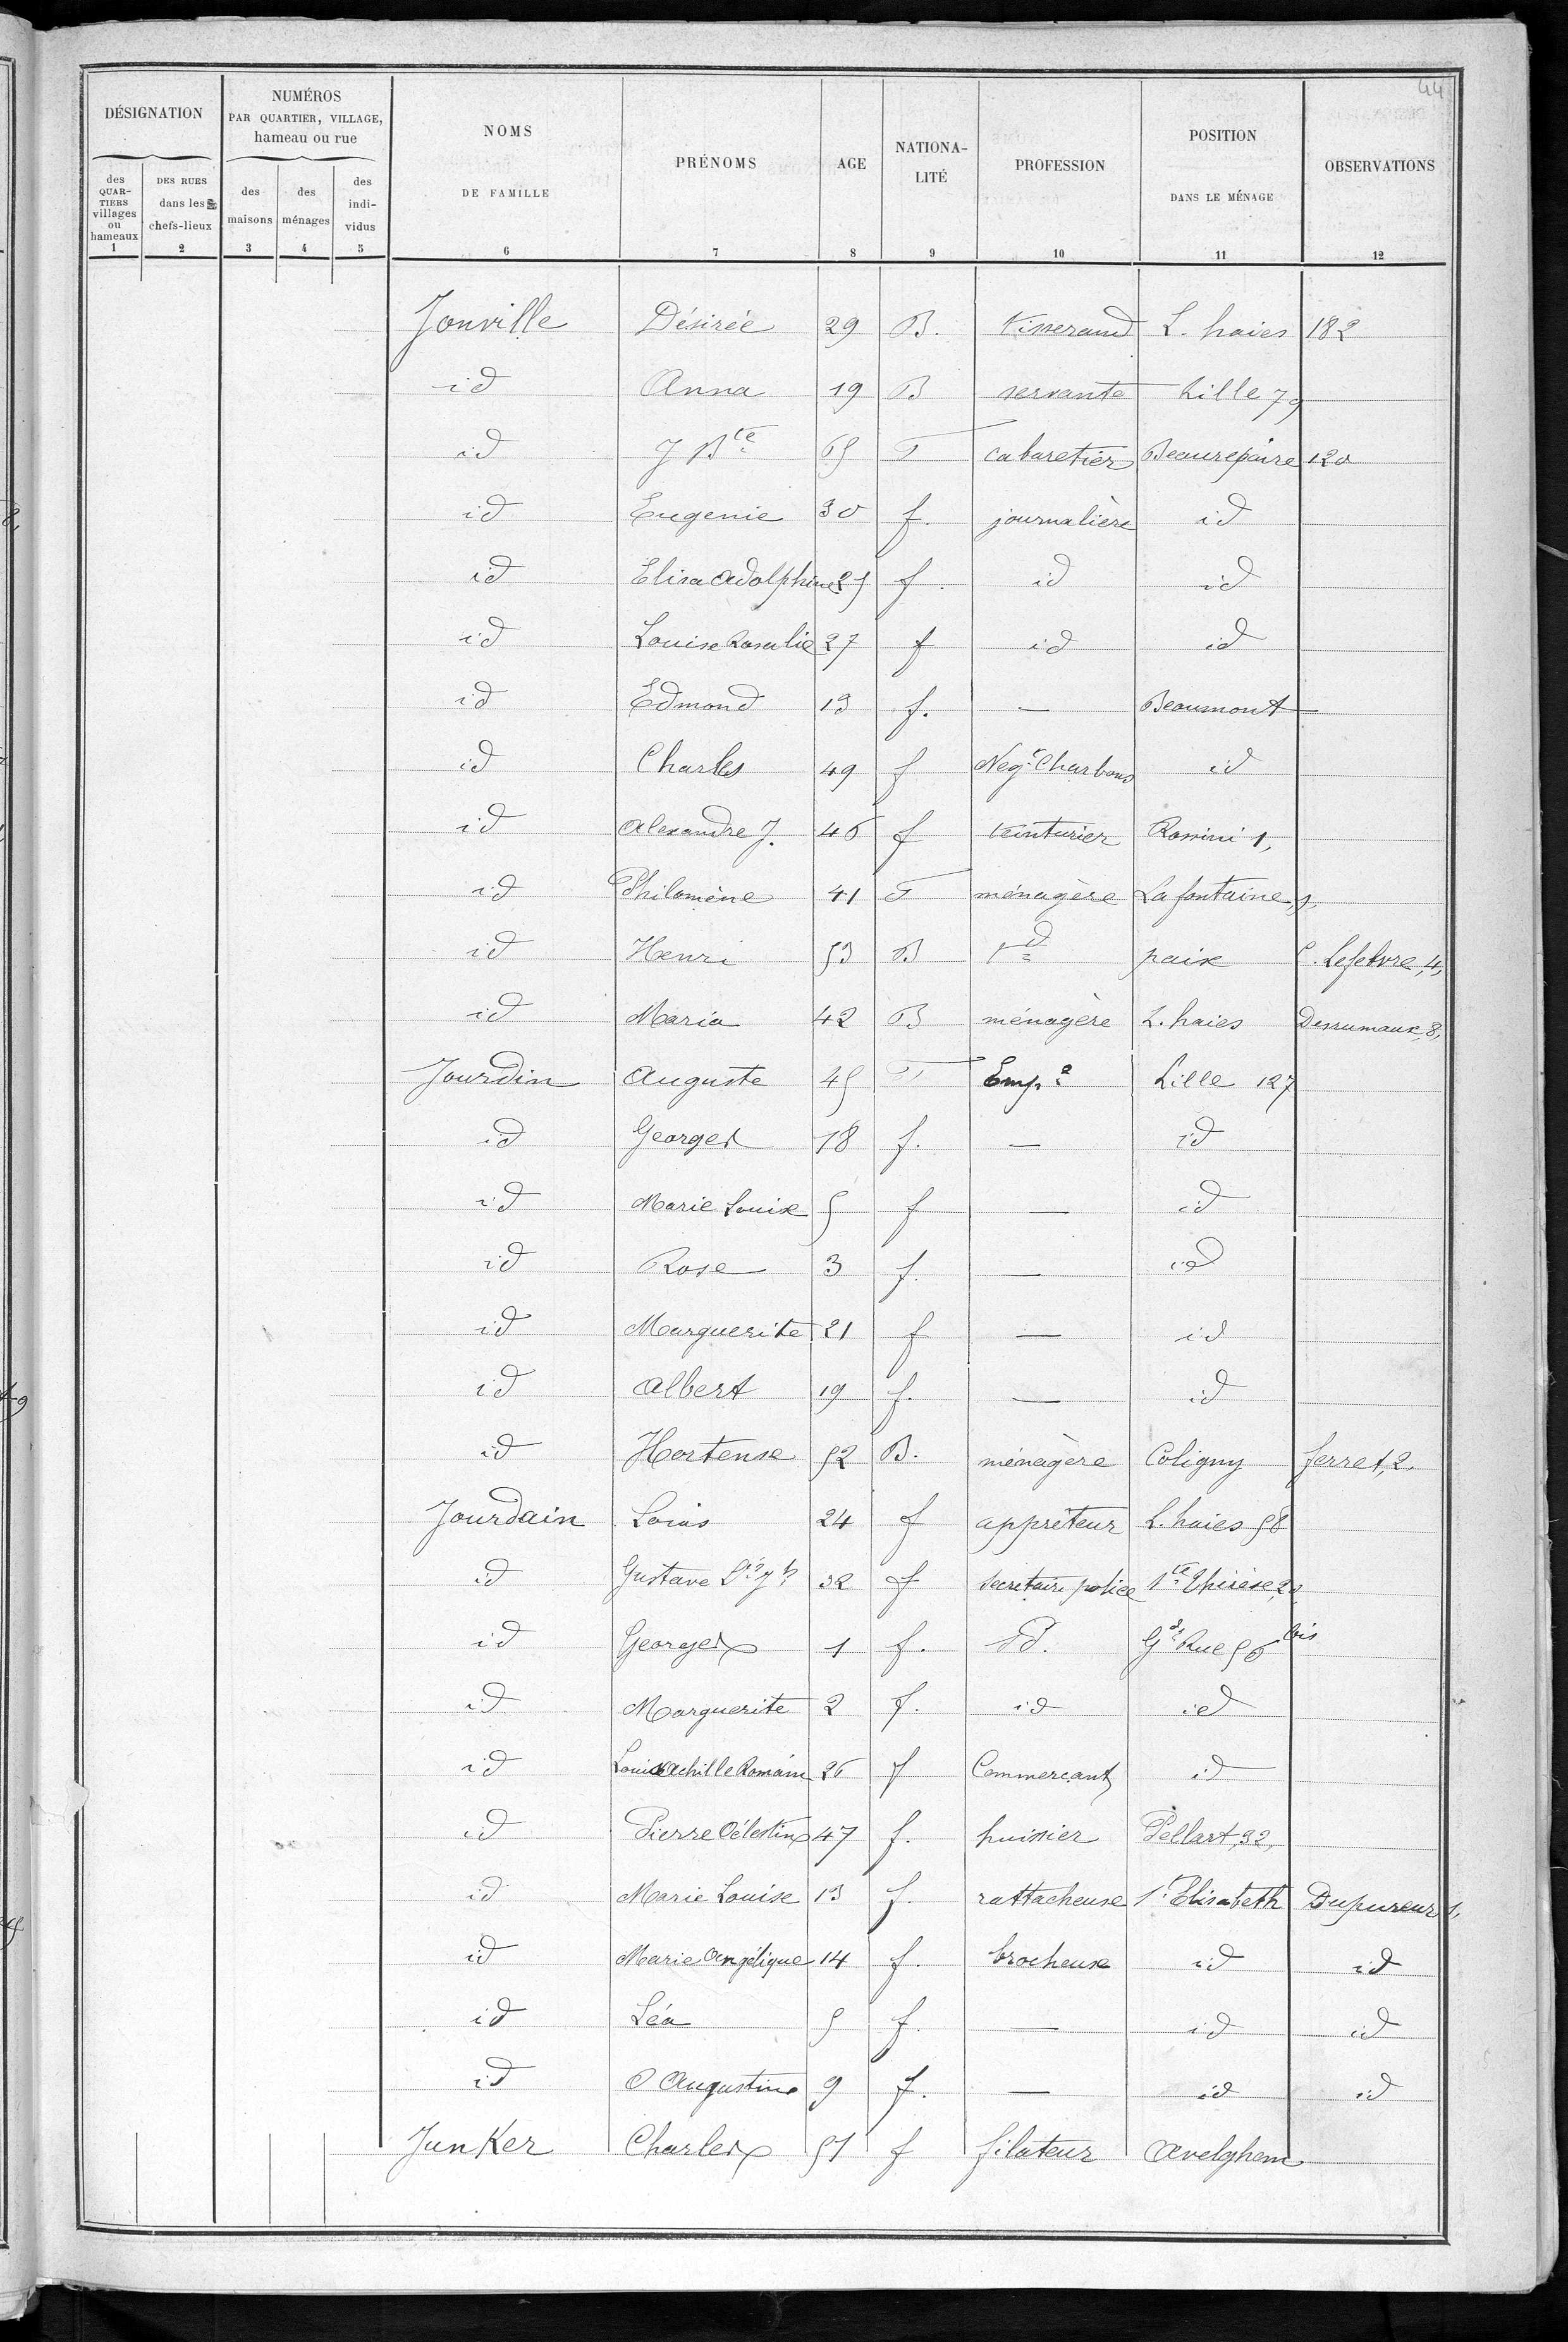 44
DÉSIGNATION
NUMÉROS PAR QUARTIER, VILLAGE, hameau ou rue
NOMS DE FAMILLE
PRÉNOMS
AGE
NATIONA-LITÉ
PROFESSION
POSITION DANS LE MÉNAGE
OBSERVATIONS
des QUAR-TIERS villages ou hameaux
DES RUES dans les chefs-lieux
des maisons
des ménages
des indi-vidus
1 2 3 4 5 6 7 8 9 10 11 12
Jonville Désirée 29 B. tisserand L. haies 182
id Anna 19 B servante Lille 79
id J Bte 65 F cabaretier Beaurepaire 120
id Eugenie 30 f. journalière id
id Elisa Adolphine 25 f. id id
id Louise Rosalie 27 f id id
id Edmond 13 f. — Beaumont —
id Charles 49 f Negt Charbons id
id Alexandre J. 46 f teinturier Rossini 1,
id Philomène 41 F ménagère Lafontaine,
id Henri 53 B paix C. Lefebvre, 4,
id Maria 42 B ménagère L. haies Desrumaux, 8,
Jourdin Auguste 45 F Empé Lille 127
id Georges 18 f. — id
id Marie Louise 5 f — id
id Rose 3 f. — id
id Marguerite 21 f — id
id Albert 19 f. — id
id Hortense 52 B. ménagère Coligny ferret, 2.
Jourdain Louis 24 f apprêteur L. haies 58
id Gustave 32 f secretaire police Ste Thérèse, 20
id Georges 1 f. Gde Rue 56 bis
id Marguerite 2 f. id id
id Louis Achille Romain 26 f Commerçant id
id Pierre Célestin 47 f. huissier Pellart, 32,
id Marie Louise 13 f. rattacheuse Ste Elisabeth Dupureur 1,
id Marie Angélique 14 f. brocheuse id id
id Léa 5 f. — id id
id O Augustine 9 f. — id id
Junker Charles 51 f filateur Avelghem